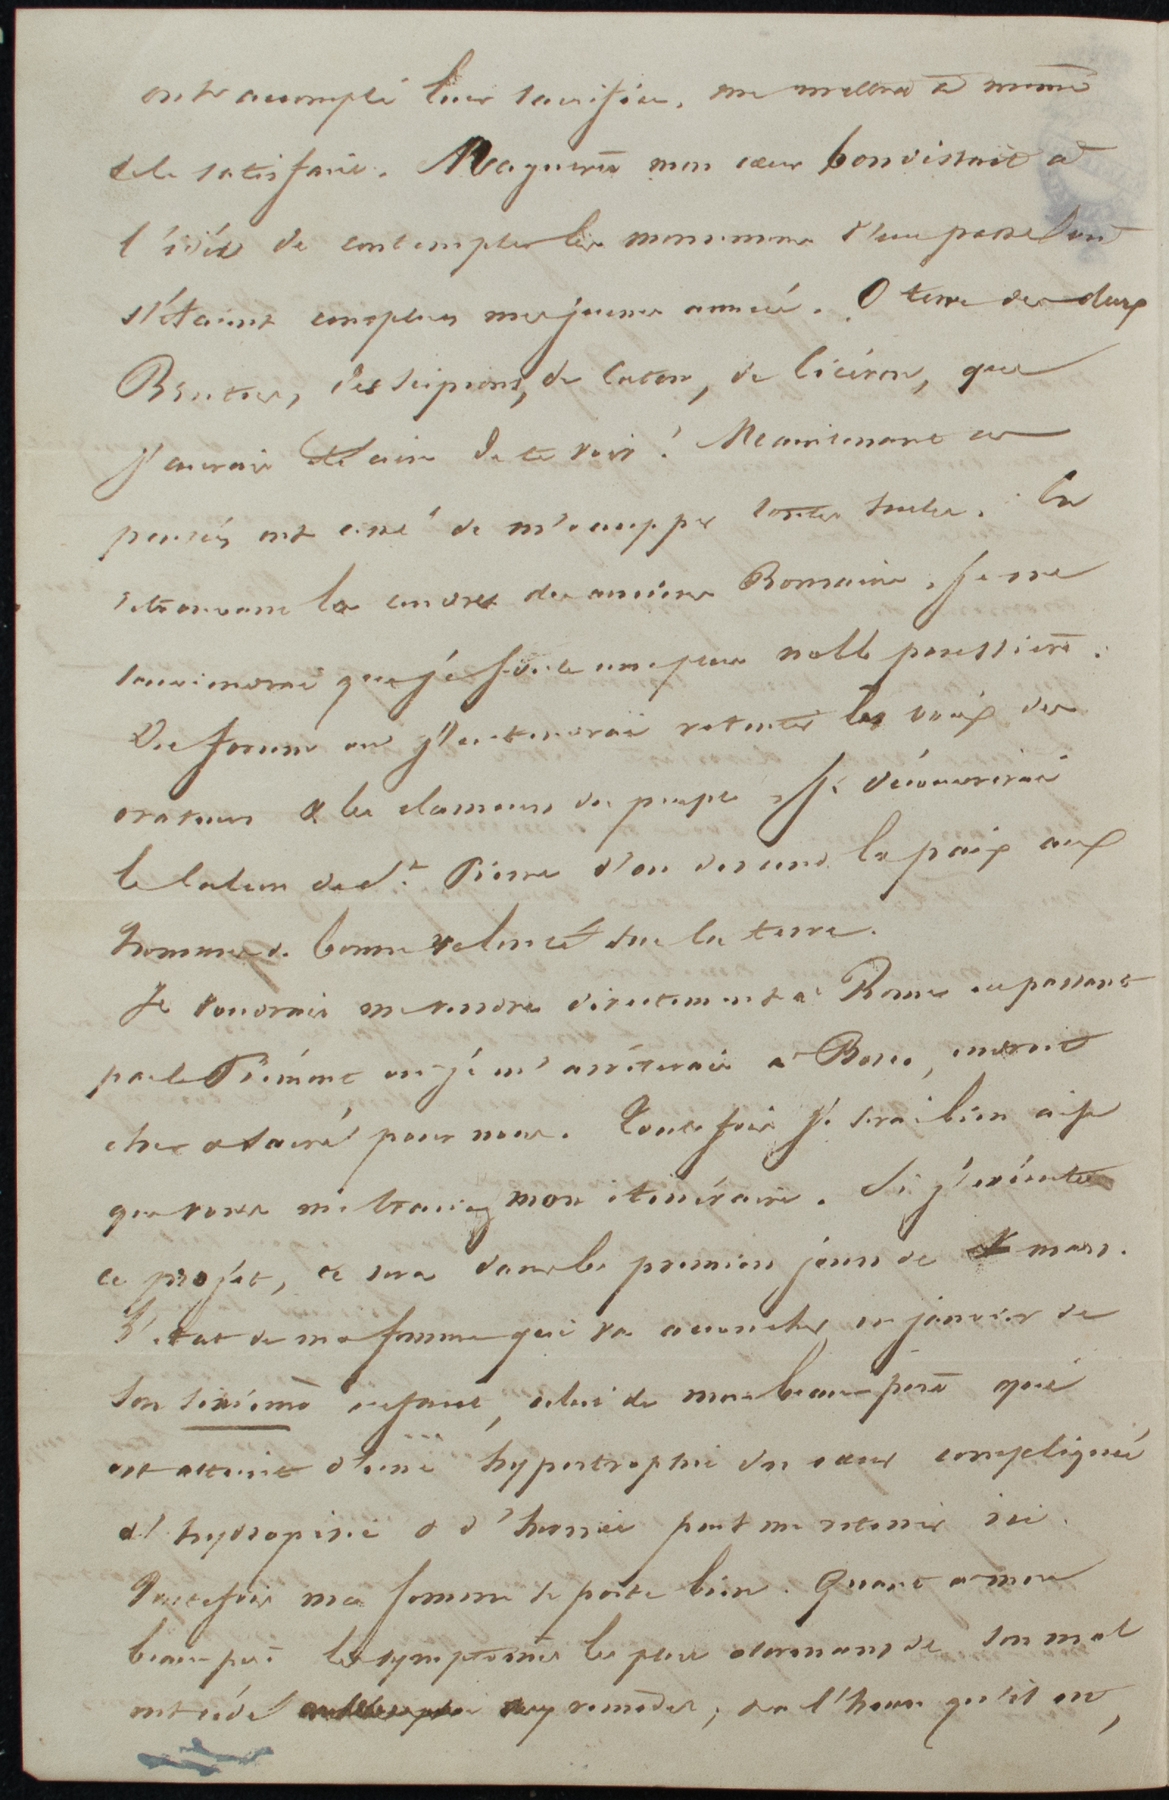 ont accompli leur sacrifice, me mettra à même
de le satisfaire. Naguère mon cœur bondissait à
l'idée de contempler les monumens d'un passé dont
s'étaient remplies mes jeunes années. O terre des deux
Brutus, des Scipions, de Caton, de Cicéron, que
j'aurais été aise de te voir ! Maintenant ces
pensées ont cessé de m'occupper toutes seules. En
retrouvant les cendres des anciens Romains, je me
souviendrai que je foule une plus noble poussière.
Du forum où j'entendrai retentir les voix des
orateurs & les clameurs du peuple, je découvrirai
le St. Pierre d'où descend la paix aux
hommes de bonne volonté sur la terre.
Je voudrais me rendre directement à Rome en passant
par le Piémont où je m'arrêterais à Bosco, endroit
cher & sacré pour nous. Toutefois je serai bien aise
que vous me traciez mon itinéraire. Si j'exécute
ce projet, ce sera dans les premiers jours de mars.
L'état de ma femme qui va accoucher en janvier de
son sixième enfant, celui de mon beau-père qui
est atteint d'une hypertrophie du cœur compliquée
d'hydropisie & d'hernie peut me retenir ici.
Toutefois ma femme se porte bien. Quant à mon
beau-père les symptômes les plus alarmans de son mal
ont cédé aux remèdes, à l'heure qu'il est,